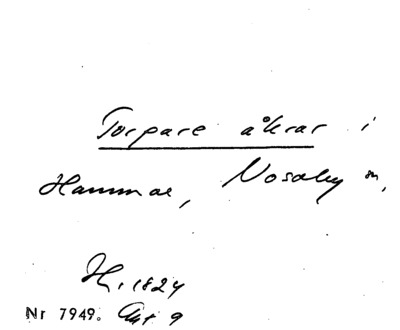 Torpare åkrar i
Hammar, Nosaby sn,
H. 1824
Nr 7949. Akt 9